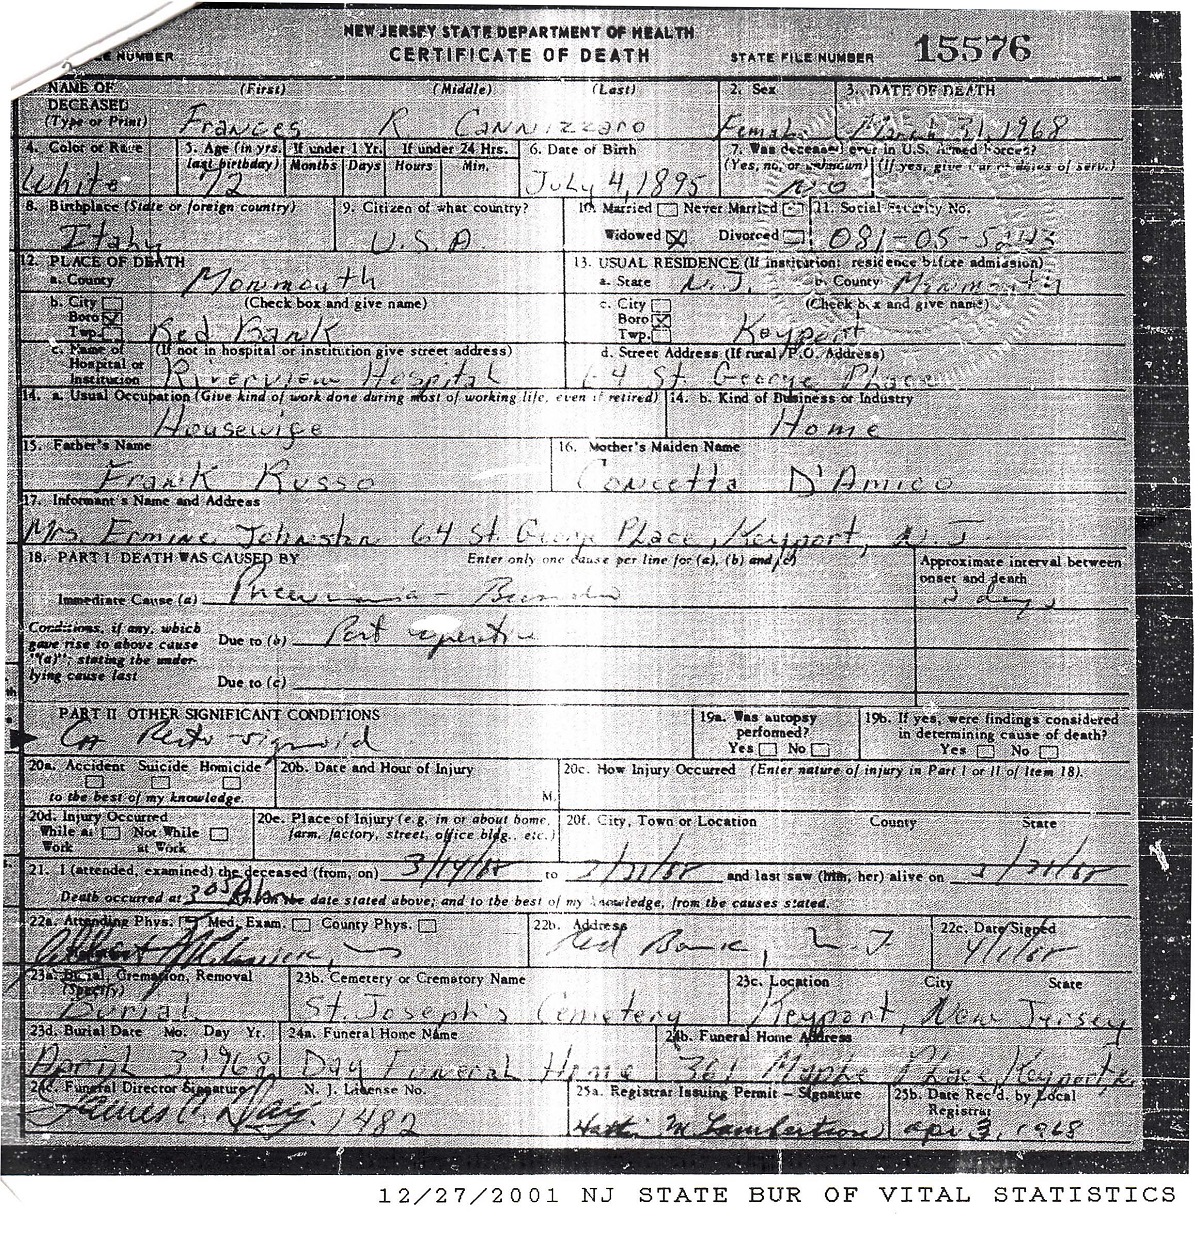 NEW JERSEY STATE DEPARTMENT OF HEALTH
CERTIFICATE OF DEATH
FILE NUMBER STATE FILE NUMBER 15576
NAME OF DECEASED (Type or Print) (First) (Middle) (Last)
Frances R. Cannizzaro
2. Sex
Female
3. DATE OF DEATH
March 31, 1968
4. Color or Race
White
5. Age (in yrs. last birthday)
72
If under 1 Yr. Months Days
If under 24 Hrs. Hours Min.
6. Date of Birth
July 4, 1895
7. Was deceased ever in U.S. Armed Forces?
(Yes, no, or unknown) (If yes, give war or dates of serv.)
No
8. Birthplace (State or foreign country)
Italy
9. Citizen of what country?
U.S.A.
10. Married Never Married
Widowed Divorced
11. Social Security No.
081-05-
12. PLACE OF DEATH
a. County
Monmouth
b. City (Check box and give name)
Boro
Twp.
Red Bank
c. Name of Hospital or Institution (If not in hospital or institution give street address)
Riverview Hospital
13. USUAL RESIDENCE (If institution: residence before admission)
a. State N.J. b. County Monmouth
c. City (Check box and give name)
Boro
Twp.
Keyport
d. Street Address (If rural, P.O. Address)
64 St. George Place
14. a. Usual Occupation (Give kind of work done during most of working life, even if retired)
Housewife
14. b. Kind of Business or Industry
Home
15. Father's Name
Frank Russo
16. Mother's Maiden Name
Concetta D'Amico
17. Informant's Name and Address
Mrs. Ermine Johnston 64 St. George Place, Keyport, N.J.
18. PART I DEATH WAS CAUSED BY Enter only one cause per line for (a), (b) and (c)
Approximate interval between onset and death
Immediate Cause (a) Pneumonia -
days
Conditions, if any, which gave rise to above cause "(a)"; stating the underlying cause last
Due to (b) Post operative
Due to (c)
PART II OTHER SIGNIFICANT CONDITIONS
Ca Recto-sigmoid
19a. Was autopsy performed?
Yes No
19b. If yes, were findings considered in determining cause of death?
Yes No
20a. Accident Suicide Homicide
to the best of my knowledge.
20b. Date and Hour of Injury
M.
20c. How Injury Occurred (Enter nature of injury in Part I or II of Item 18).
20d. Injury Occurred
While at Work Not While at Work
20e. Place of Injury (e.g. in or about home, farm, factory, street, office bldg., etc.)
20f. City, Town or Location County State
21. I (attended, examined) the deceased (from, on) 3/14/68 to 3/31/68 and last saw (him, her) alive on 3/31/68
Death occurred at 305 A m. on the date stated above; and to the best of my knowledge, from the causes stated.
22a. Attending Phys. Med. Exam. County Phys.
22b. Address
Red Bank, N.J.
22c. Date Signed
4/1/68
23a. Burial, Cremation, Removal (Specify)
Burial
23b. Cemetery or Crematory Name
St. Joseph's Cemetery
23c. Location City State
Keyport, New Jersey
23d. Burial Date Mo. Day Yr.
April 3 1968
24a. Funeral Home Name
Day Funeral Home
24b. Funeral Home Address
361 Maple Place, Keyport
24c. Funeral Director Signature N. J. License No.
James C. Day. 1482
25a. Registrar Issuing Permit - Signature
Hattie M Lambertson
25b. Date Rec'd. by Local Registrar
Apr 3, 1968
12/27/2001 NJ STATE BUR OF VITAL STATISTICS